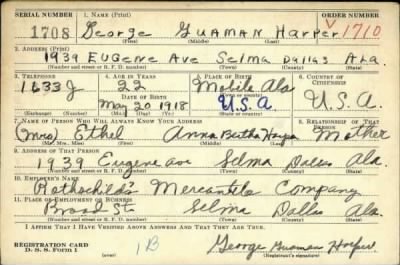 SERIAL NUMBER 1. NAME (Print) ORDER NUMBER
1708 George Guaman Harper V1710
(First) (Middle) (Last)
3. ADDRESS (Print)
1939 EUGENE AVE Selma Dallas Ala
(Number and street or R. F. D. number) (Town) (County) (State)
3. TELEPHONE 4. AGE IN YEARS 5. PLACE OF BIRTH 6. COUNTRY OF CITIZENSHIP
1633J 22 Mobile Ala
(Town or county)
DATE OF BIRTH
May 20 1918 U.S.A U.S.A.
(Exchange) (Number) (Mo.) (Day) (Yr.) (State or country)
7. NAME OF PERSON WHO WILL ALWAYS KNOW YOUR ADDRESS 8. RELATIONSHIP OF THAT PERSON
(Mrs) Ethel Anna Bertha Harper Mother
(Mr., Mrs., Miss) (First) (Middle) (Last)
9. ADDRESS OF THAT PERSON
1939 Eugene Ave Selma Dallas Ala.
(Number and street or R. F. D. number) (Town) (County) (State)
10. EMPLOYER'S NAME
Rothschild's Mercantile Company
11. PLACE OF EMPLOYMENT OR BUSINESS
Broad St. Selma Dallas Ala.
(Number and street or R. F. D. number) (Town) (County) (State)
I AFFIRM THAT I HAVE VERIFIED ABOVE ANSWERS AND THAT THEY ARE TRUE.
REGISTRATION CARD
D. S. S. Form 1 1B George Guaman Harper
(Registrant's signature)